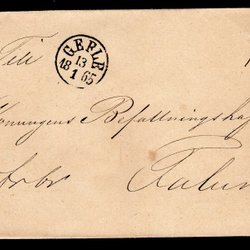 Till
GEFLE
13
18 1 65
onungens Befallningsha
Falun